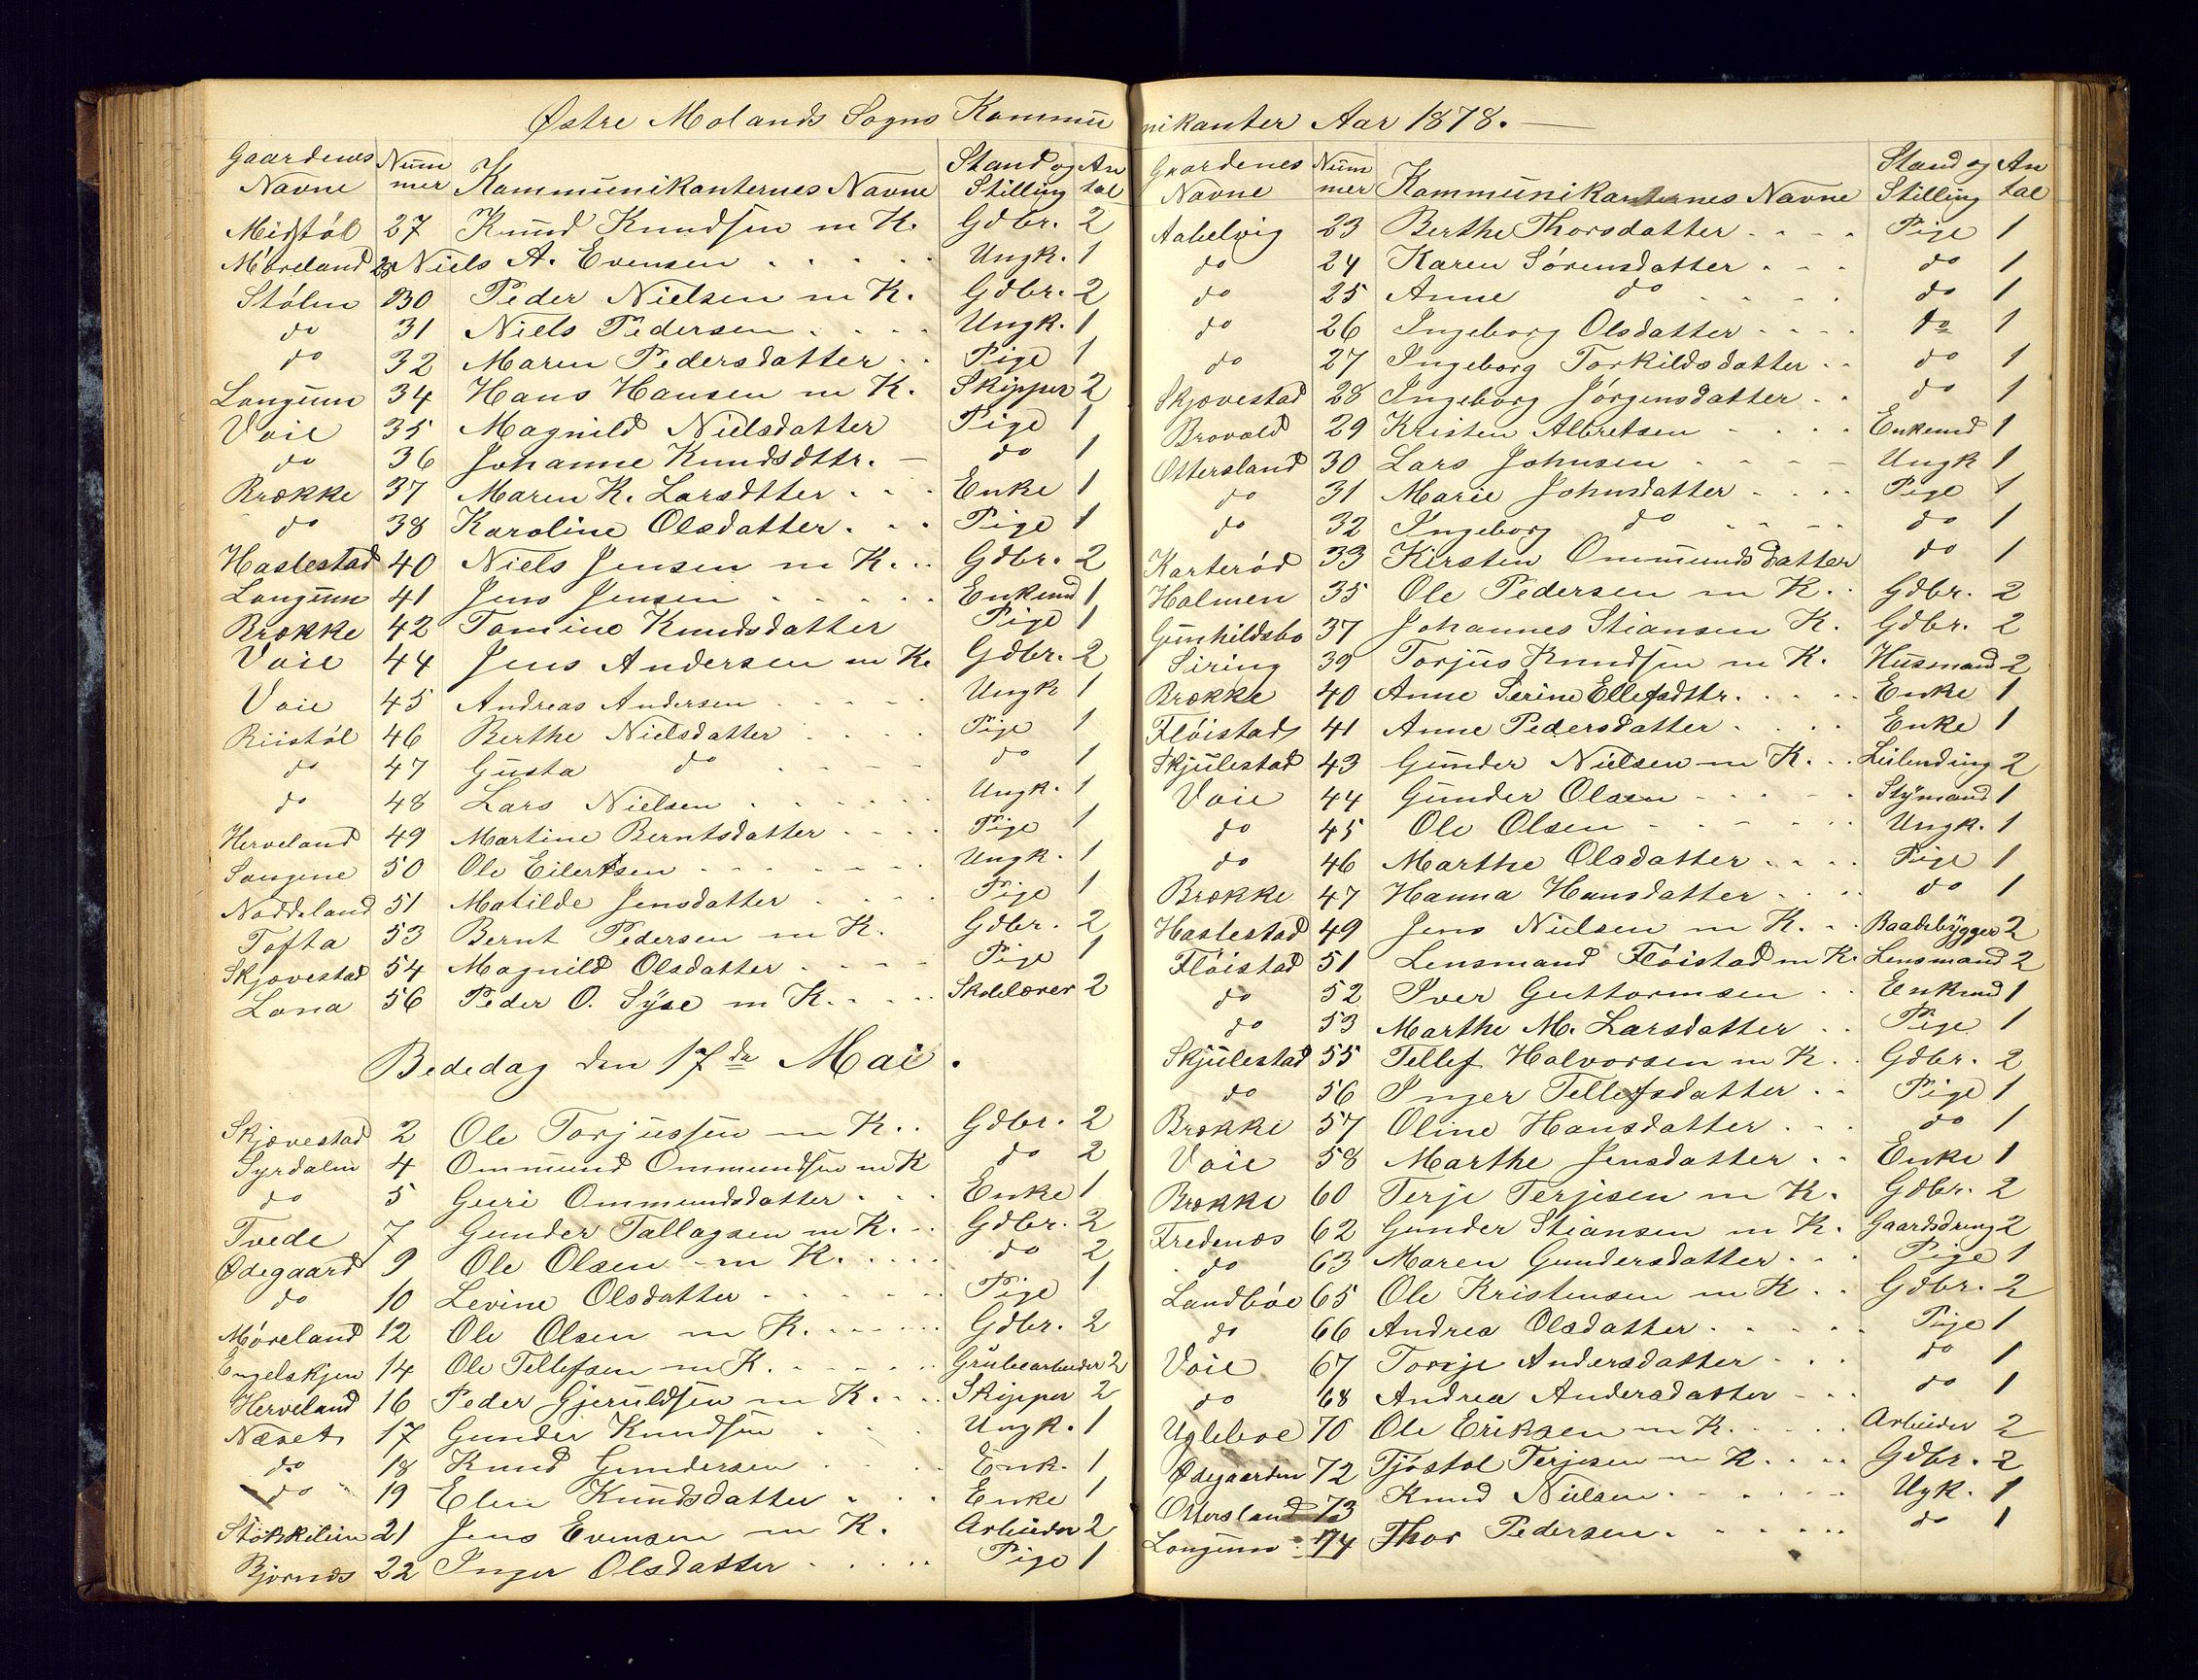 Østre Molands Sogns Kommu
Gaardenes Navne | Num mer | Kommunikanternes Navne | Stand og Stilling | An tal
Midtöl 27 Knud Knudsen m K. Gdbr. 2
Möreland 28 Niels A. Evensen Ungk. 1
Stölen 30 Peder Nielsen m K. Gdbr. 2
do 31 Niels Pedersen Ungk. 1
do 32 Maren Pedersdatter Pige 1
Longum 34 Hans Hansen m K. Skipper 2
Voie 35 Magnild Nielsdatter Pige 1
do 36 Johanne Knudsdttr. do 1
Brække 37 Maren K. Larsdtter Enke 1
do 38 Karoline Olsdatter Pige 1
Haslestad 40 Niels Jensen m K. Gdbr. 2
Longum 41 Jens Jensen Enkemd 1
Brække 42 Tomine Knudsdatter Pige 1
Voie 44 Jens Andersen m K. Gdbr. 2
Voie 45 Andreas Andersen Ungk 1
Riistöl 46 Berthe Nielsdatter Pige 1
do 47 Gusta do do 1
do 48 Lars Nielsen Ungk. 1
Herveland 49 Martine Berntsdatter Pige 1
Songene 50 Ole Eilertsen Ungk. 1
Noddeland 51 Matilde Jensdatter Pige 1
Tofta 53 Bernt Pedersen m K. Gdbr. 2
Skjøvestad 54 Magnild Olsdatter Pige 1
Lona 56 Peder O. Syse m K. Skolelærer 2
Bededag den 17de Mai.
Skjævestad 2 Ole Torjussen m K. Gdbr. 2
Syrdalen 4 Ommund Ommundsen m K do 2
do 5 Guri Ommundsdatter Enke 1
Tvede 7 Gunder Tallagsen m K. Gdbr. 2
Ødegaard 9 Ole Olsen m K. do 2
do 10 Levine Olsdatter Pige 1
Möreland 12 Ole Olsen m K. Gdbr. 2
Engelskjen 14 Ole Tellefsen m K. Grubearbeider 2
Herveland 16 Peder Gjeruldsen m K. Skipper 2
Næset 17 Gunder Knudsen Ungk. 1
do 18 Knud Gundersen Enk. 1
do 19 Elen Knudsdatter Enke 1
Stökkelien 21 Jens Evensen m K. Arbeider 2
Bjornes 22 Inger Olsdatter Pige 1
nikanter Aar 1878.
Gaardenes Navne | Num mer | Kommunikanternes Navne | Stand og Stilling | An tal
Aalielvig 23 Berthe Thorsdatter Pige 1
do 24 Karen Sörensdatter do 1
do 25 Anne do do 1
do 26 Ingeborg Olsdatter do 1
do 27 Ingeborg Torkildsdatter do 1
Skjævestad 28 Ingeborg Jörgensdatter do 1
Brovold 29 Kristen Albretsen Enkemd 1
Ottersland 30 Lars Johnsen Ungk 1
do 31 Marie Johnsdatter Pige 1
do 32 Ingeborg do do 1
Karteröd 33 Kirsten Ommundsdatter do 1
Holmen 35 Ole Pedersen m K. Gdbr. 2
Gunhildsbo 37 Johannes Stiansen K. Gdbr. 2
Siring 39 Torjus Knudsen m K. Husmand 2
Brække 40 Anne Serine Ellefsdttr. Enke 1
Flöistad 41 Anne Pedersdatter Enke 1
Skjulestad 43 Gunder Nielsen m K. Leilending 2
Voie 44 Gunder Olsen Stymand 1
do 45 Ole Olsen Ungk. 1
do 46 Marthe Olsdatter Pige 1
Brække 47 Hanna Hansdatter do 1
Haslestad 49 Jens Nielsen m K. Baadebygger 2
Flöistad 51 Lensmand Flöistad m K. Lensmand 2
do 52 Iver Guttormsen Enkmd 1
do 53 Marthe M. Larsdatter Pige 1
Skjulestad 55 Tellef Halvorsen m K. Gdbr. 2
do 56 Inger Tellefsdatter Pige 1
Brække 57 Oline Hansdatter do 1
Voie 58 Marthe Jensdatter Enke 1
Brække 60 Terje Terjesen m K. Gdbr. 2
Fredenæs 62 Gunder Stiansen m K. Gaardsdreng 2
do 63 Maren Gundersdatter Pige 1
Landböe 65 Ole Kristensen m K. Gdbr. 2
do 66 Andrea Olsdatter Pige 1
Voie 67 Torje Andersdatter do 1
do 68 Andrea Andersdatter do 1
Ugleboe 70 Ole Eriksen m K. Arbeider 2
Ødegaarden 72 Tjöstol Terjesen m K. Gdbr. 2
Ottersland 73 Knud Nielsen Ugk. 1
Longum 74 Thor Pedersen do 1